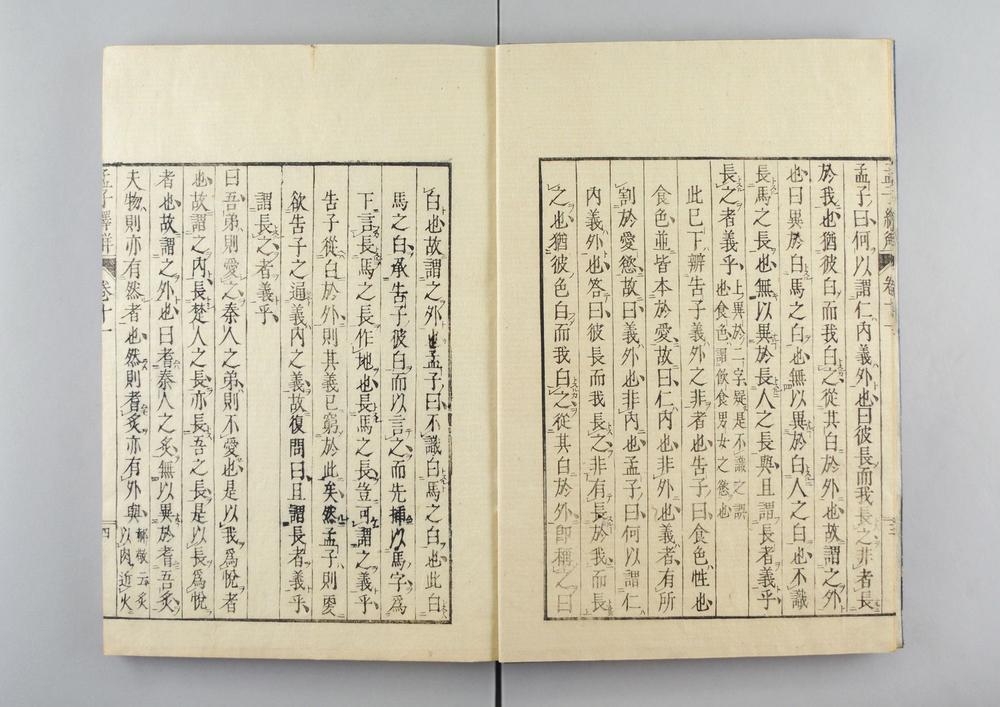 孟子曰何以謂仁內義外也曰彼長而我長之非者長
於我也猶彼白而我白之從其白於外也故謂之外
也曰異於白馬之白也無以異於白人之白也不識
長馬之長也無以異於長人之長與且謂長者義乎
長之者義乎上異於二字疑是不識之誤
也食色謂飲食男女之慾也
此已下辨告子義外之非者也告子曰食色性也
食色並皆本於愛故曰仁內也非外也義者有所
割於愛慾故曰義外也非內也孟子曰何以謂仁
內義外也答曰彼長而我長之非有長於我而長
之也猶彼色白而我白之從其白於外即稱之曰
白也故謂之外也孟子曰不識白馬之白也此白
馬之白承告子彼白而以言之而先揷以馬字爲
下言長馬之長作地也長馬之長豈可謂之義乎
告子從白於外則其義已窮於此矣然孟子則更
欲告子之通義內之義故復問曰且謂長者義乎
謂長之者義乎
曰吾弟則愛之秦人之弟則不愛也是以我爲悅者
也故謂之內長楚人之長亦長吾之長是以長爲悅
者也故謂之外也曰耆秦人之炙無以異於耆吾炙
夫物則亦有然者也然則耆炙亦有外與郝敬云炙
以肉近火
孟子繹解 卷十一 四